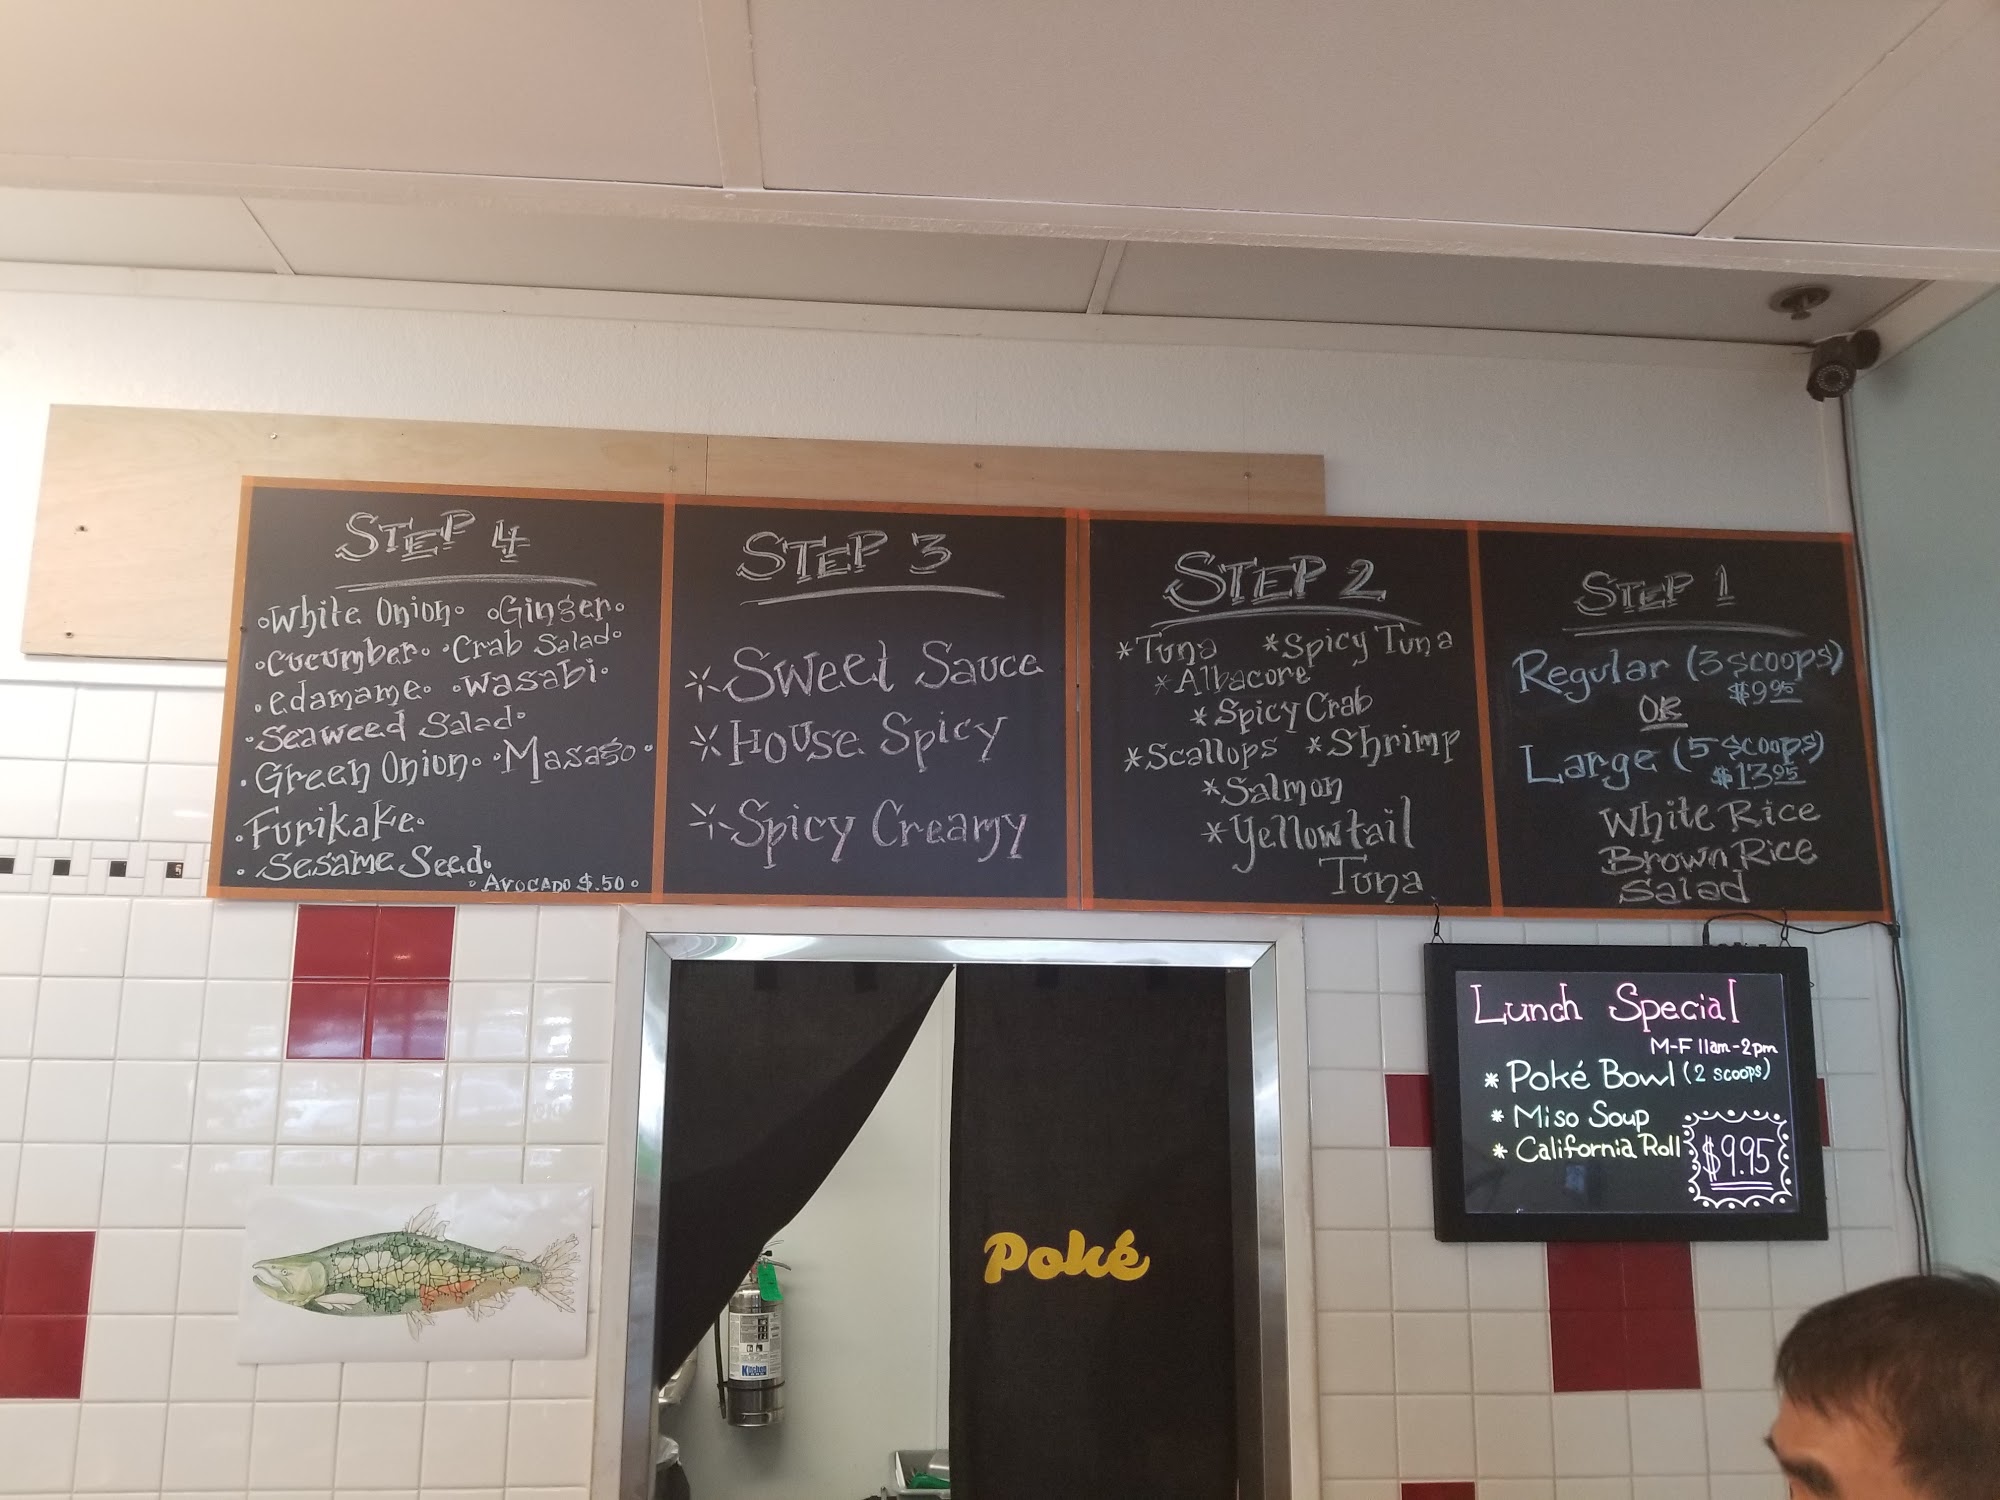 STEP 4
White Onion Ginger
Cucumber Crab Salad
edamame wasabi
Seaweed Salad
Green Onion Masago
Furikake
Sesame Seed
Avocado $.50
STEP 3
Sweet Sauce
House Spicy
Spicy Creamy
STEP 2
*Tuna *Spicy Tuna
*Albacore
*Spicy Crab
*Scallops *Shrimp
*Salmon
*Yellowtail
Tuna
STEP 1
Regular (3 scoops)
$9.95
OR
Large (5 scoops)
$13.95
White Rice
Brown Rice
Salad
Lunch Special
M-F 11am-2pm
* Poké Bowl (2 scoops)
* Miso Soup
* California Roll
$9.95
Poké
Kitchen